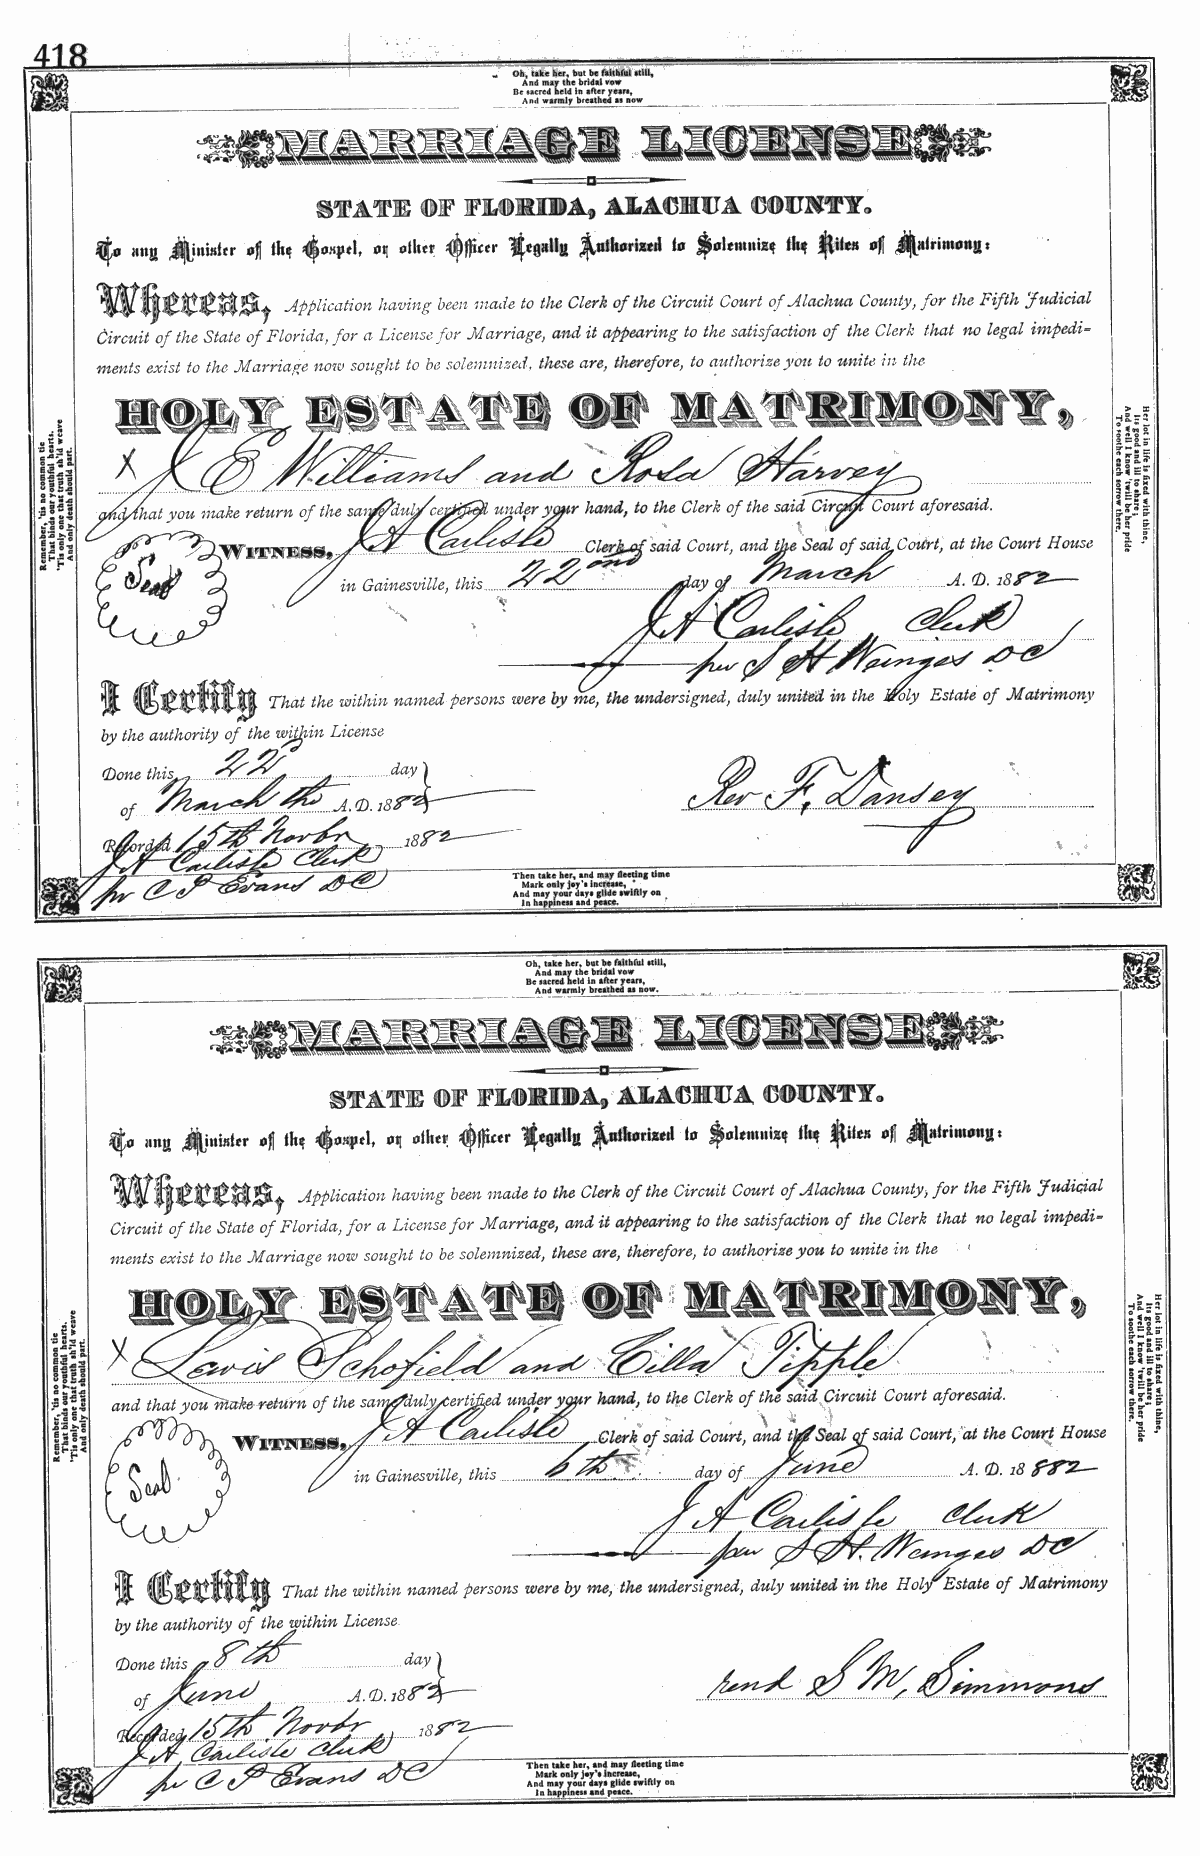 418
Oh, take her, but be faithful still,
And may the bridal vow
Be sacred held in after years,
And warmly breathed as now
MARRIAGE LICENSE
STATE OF FLORIDA, ALACHUA COUNTY.
To any Minister of the Gospel, or other Officer Legally Authorized to Solemnize the Rites of Matrimony:
Whereas, Application having been made to the Clerk of the Circuit Court of Alachua County, for the Fifth Judicial
Circuit of the State of Florida, for a License for Marriage, and it appearing to the satisfaction of the Clerk that no legal impedi-
ments exist to the Marriage now sought to be solemnized, these are, therefore, to authorize you to unite in the
HOLY ESTATE OF MATRIMONY,
X J E Williams and Rosa Harvey
and that you make return of the same duly certified under your hand, to the Clerk of the said Circuit Court aforesaid.
Seal
WITNESS, J A Carlisle Clerk of said Court, and the Seal of said Court, at the Court House
in Gainesville, this 22nd day of March A. D. 1882
J A Carlisle Clerk
per S H Wienges DC
I Certify That the within named persons were by me, the undersigned, duly united in the Holy Estate of Matrimony
by the authority of the within License
Done this 22 day
of March the A.D. 1882
Rev F. Dansey
Recorded 15th Novbr 1882
J A Carlisle Clerk
pr C P Evans DC
Remember, 'tis no common tie
That binds our youthful hearts.
'Tis only one that truth sh'ld weave
And only death should part.
Her lot in life is fixed with thine,
Its good and ill to share;
And well I know 'twill be her pride
To soothe each sorrow there.
Then take her, and may fleeting time
Mark only joy's increase,
And may your days glide swiftly on
In happiness and peace.
Oh, take her, but be faithful still,
And may the bridal vow
Be sacred held in after years,
And warmly breathed as now.
MARRIAGE LICENSE
STATE OF FLORIDA, ALACHUA COUNTY.
To any Minister of the Gospel, or other Officer Legally Authorized to Solemnize the Rites of Matrimony:
Whereas, Application having been made to the Clerk of the Circuit Court of Alachua County, for the Fifth Judicial
Circuit of the State of Florida, for a License for Marriage, and it appearing to the satisfaction of the Clerk that no legal impedi-
ments exist to the Marriage now sought to be solemnized, these are, therefore, to authorize you to unite in the
HOLY ESTATE OF MATRIMONY,
X Lewis Schofield and Cilla Tipple
and that you make return of the same duly certified under your hand, to the Clerk of the said Circuit Court aforesaid.
Seal
WITNESS, J A Carlisle Clerk of said Court, and the Seal of said Court, at the Court House
in Gainesville, this 6th day of June A. D. 18882
J A Carlisle Clerk
per S H. Wienges DC
I Certify That the within named persons were by me, the undersigned, duly united in the Holy Estate of Matrimony
by the authority of the within License
Done this 8th day
of June A.D. 1882
rend S M, Simmons
Recorded 15th Novbr 1882
J A Carlisle Clerk
pr C P Evans DC
Remember, 'tis no common tie
That binds our youthful hearts.
'Tis only one that truth sh'ld weave
And only death should part.
Her lot in life is fixed with thine,
Its good and ill to share;
And well I know 'twill be her pride
To soothe each sorrow there.
Then take her, and may fleeting time
Mark only joy's increase,
And may your days glide swiftly on
In happiness and peace.